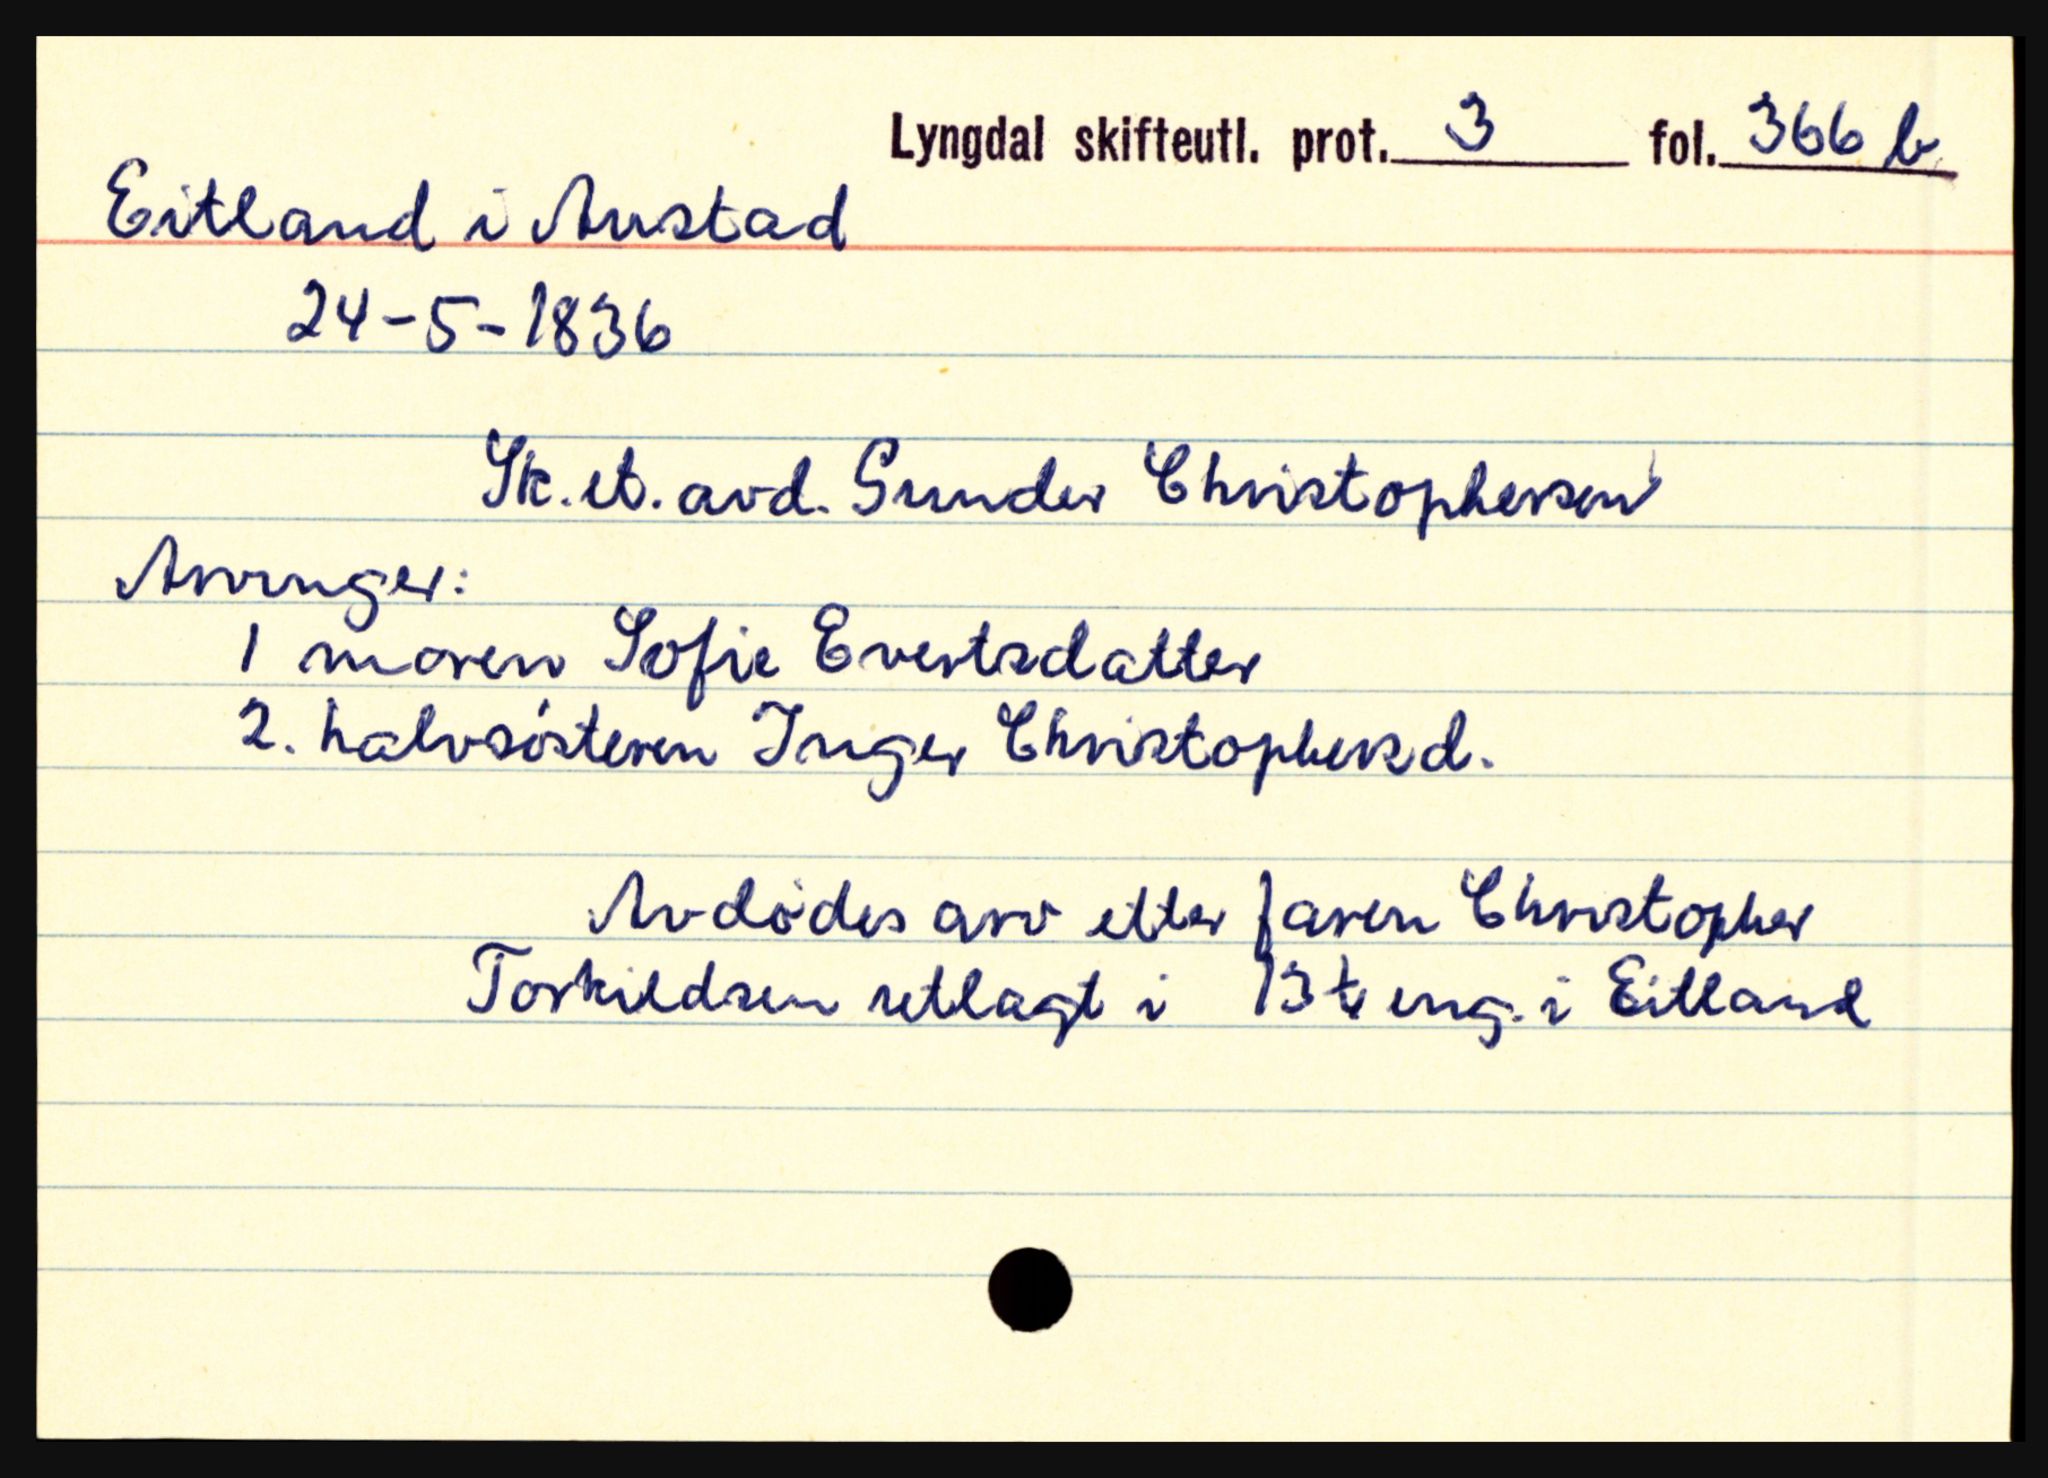 Lyngdal skifteutl. prot. 3 fol. 366 b
Eitland i Austad
24-5-1836
Sk. et. avd. Gunder Christophersen
Arvinger:
1 moren Sofie Evertsdatter
2. halvsösteren Inger Christophersd.
Avdödes arv etter faren Christopher
Torkildsen utlagt i 13 eng. i Eitland